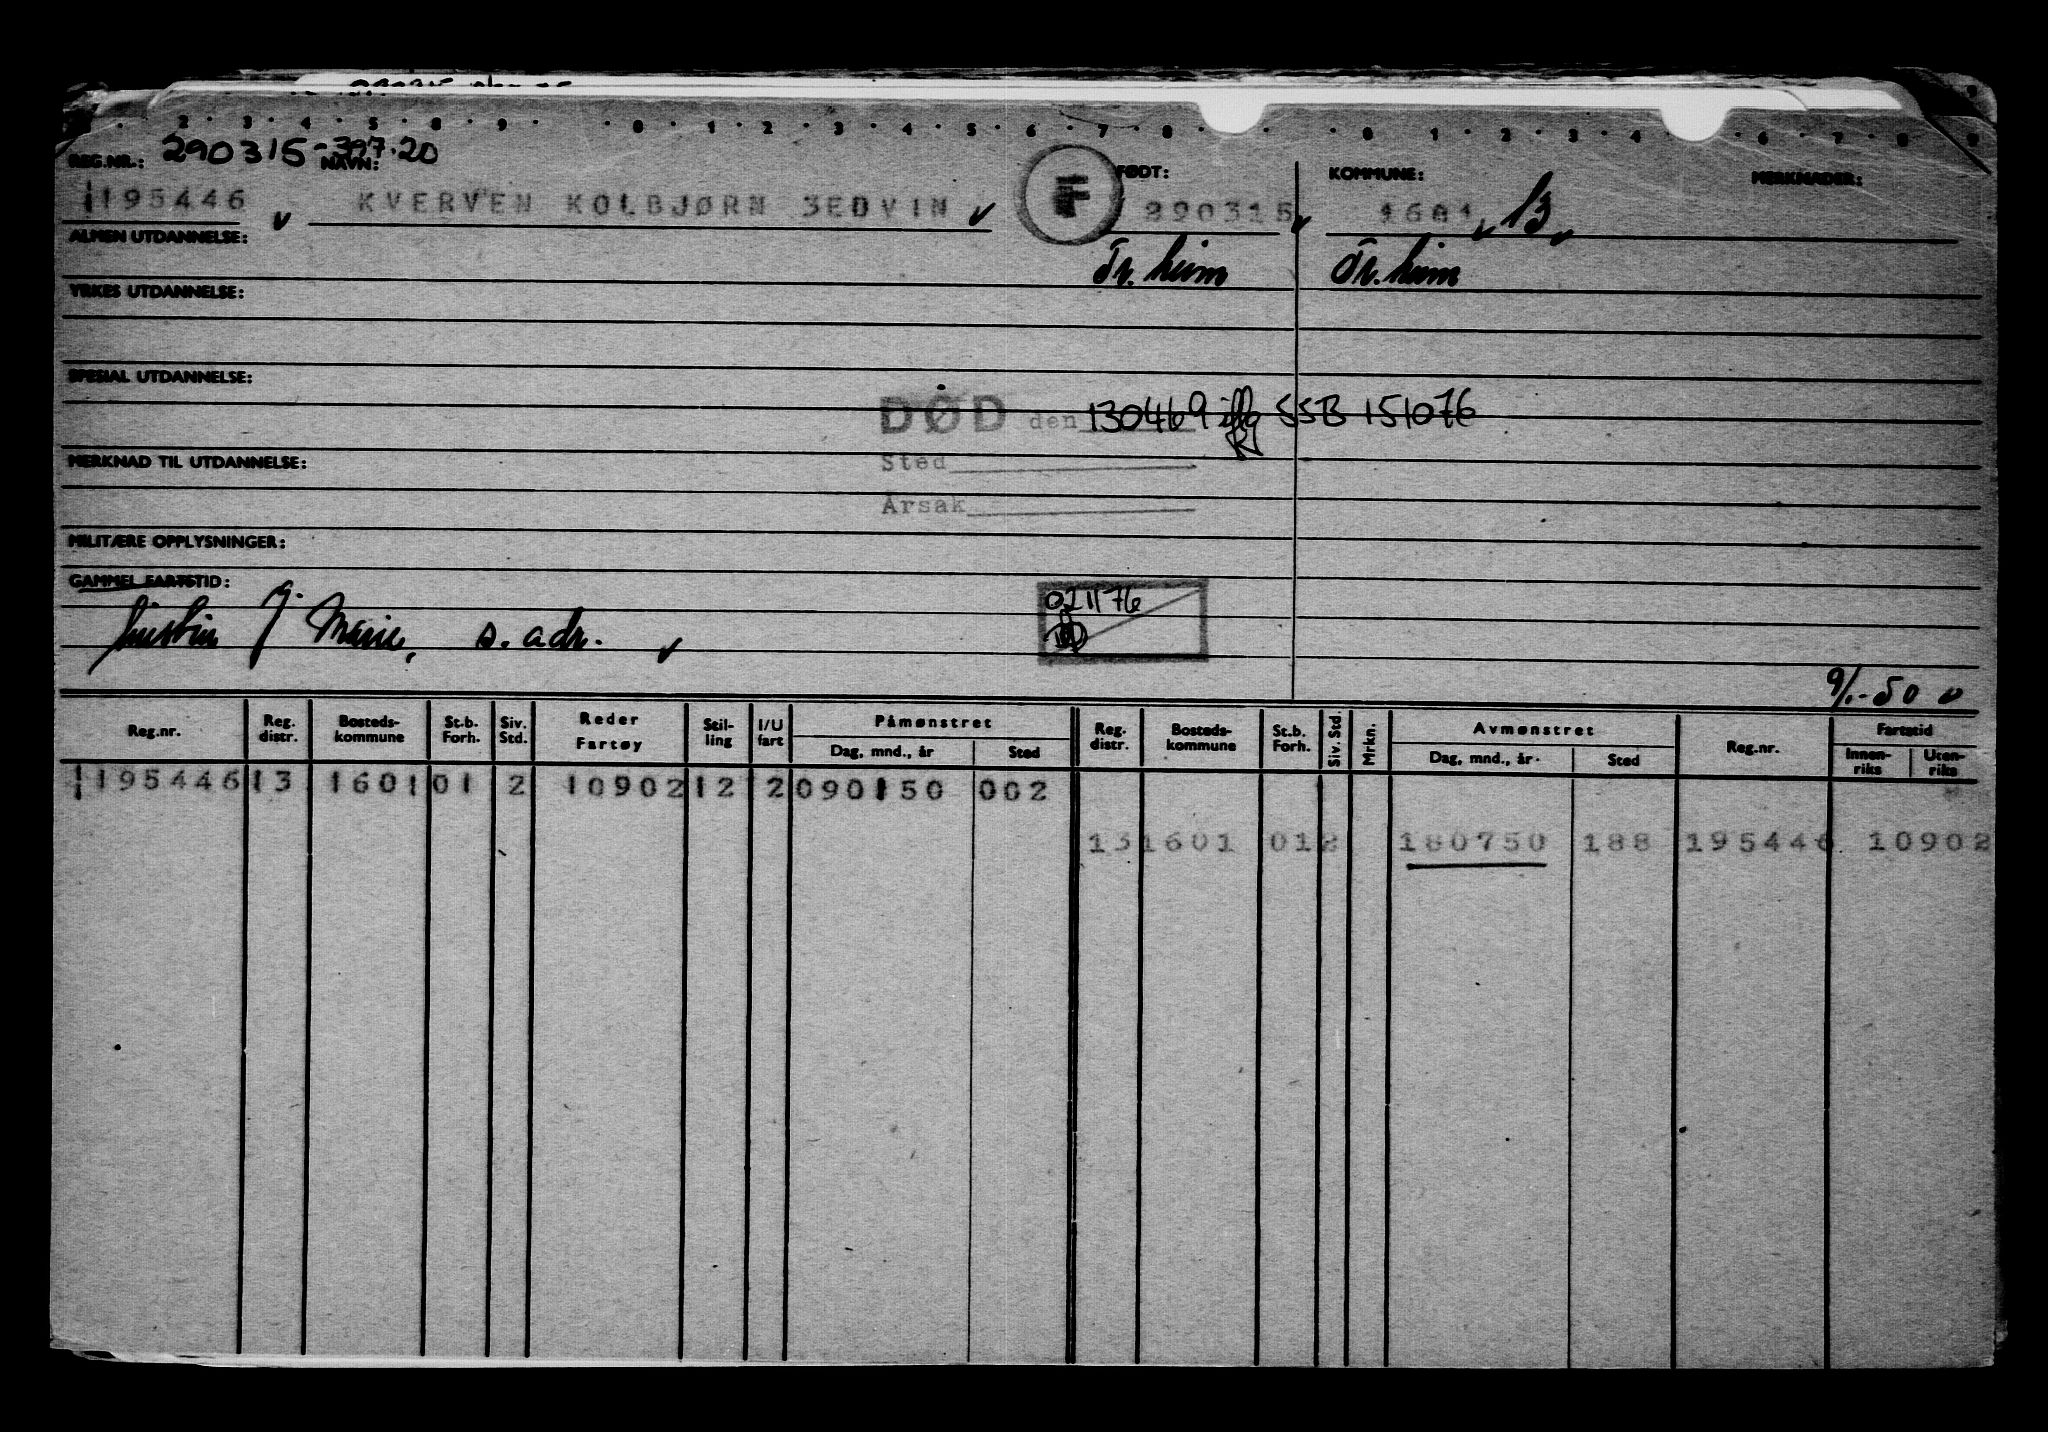 · 2 · 3 · 4 · 5 · 8 · 9 · · 0 · 1 · 2 · 3 · 4 · 5 · 6 · 7 · 8 · · 0 1 · 2 · 3 · 4 · 6 · 7 · 8 · 9
290315-397.20
REG.NR.: NAVN: FØDT: KOMMUNE: MERKNADER:
195446 KVERVEN KOLBJØRN SEDVIN F 290315 1601 13
ALMEN UTDANNELSE:
Tr.heim Tr.heim
YRKES UTDANNELSE:
SPESIAL UTDANNELSE:
DØD den 130469 iflg SSB 151076
MERKNAD TIL UTDANNELSE: Sted
Årsak
MILITÆRE OPPLYSNINGER:
GAMMEL FARTSTID:
021176
J. Marie, s. adr.
9/1-50
Reg.nr. Reg. distr. Bosteds-kommune St.b. Forh. Siv. Std. Reder Fartøy Stil-ling I/U fart Påmønstret Dag, mnd., år Sted Reg. distr. Bosteds-kommune St.b. Forh. Siv. Std. Mrkn. Avmønstret Dag, mnd., år Sted Reg.nr. Fartstid Innen-riks Uten-riks
195446 13 1601 01 2 10902 12 2 090150 002
13 1601 01 2 180750 188 195446 10902